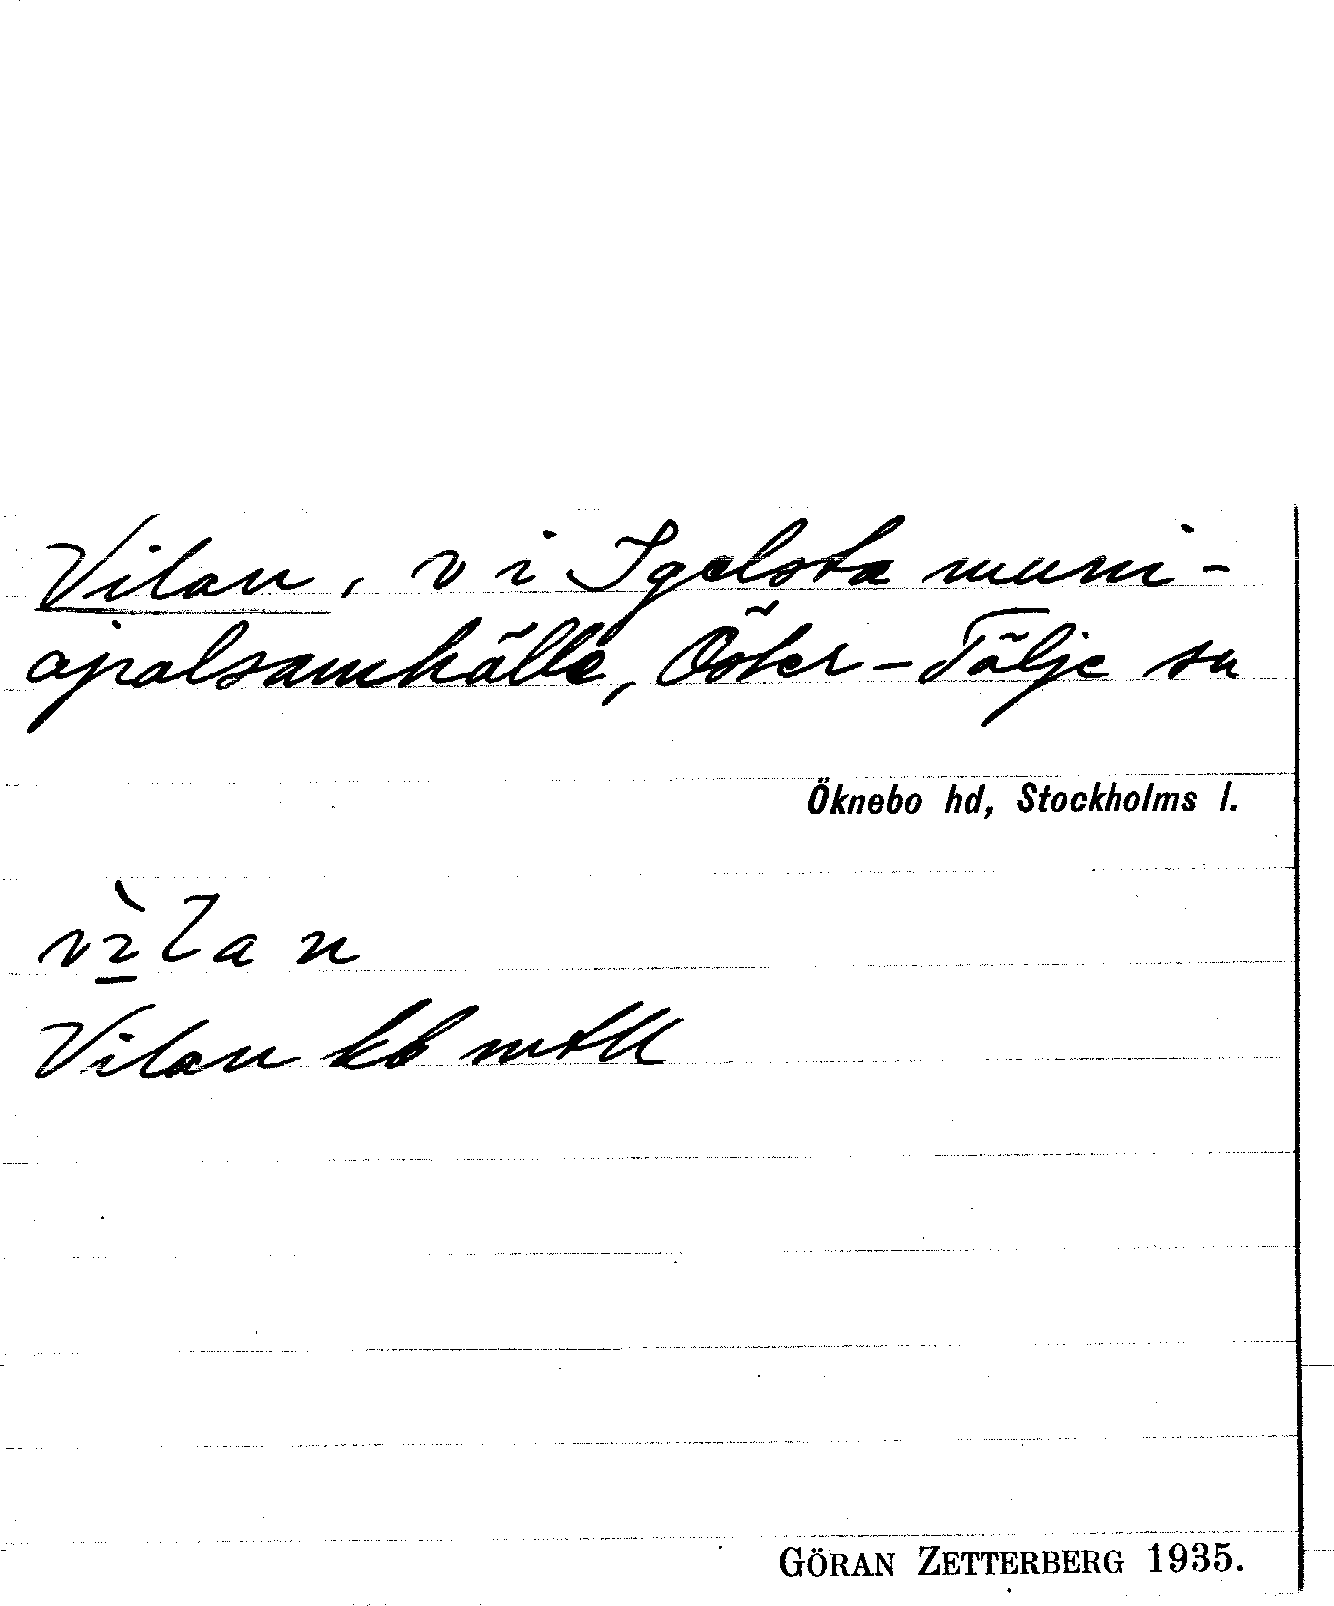 Vilan, v i Igelsta muni-
cipalsamhälle, Öster-Tälje sn
Öknebo hd, Stockholms l.
vìlan
Vilan kb mtll
GÖRAN ZETTERBERG 1935.